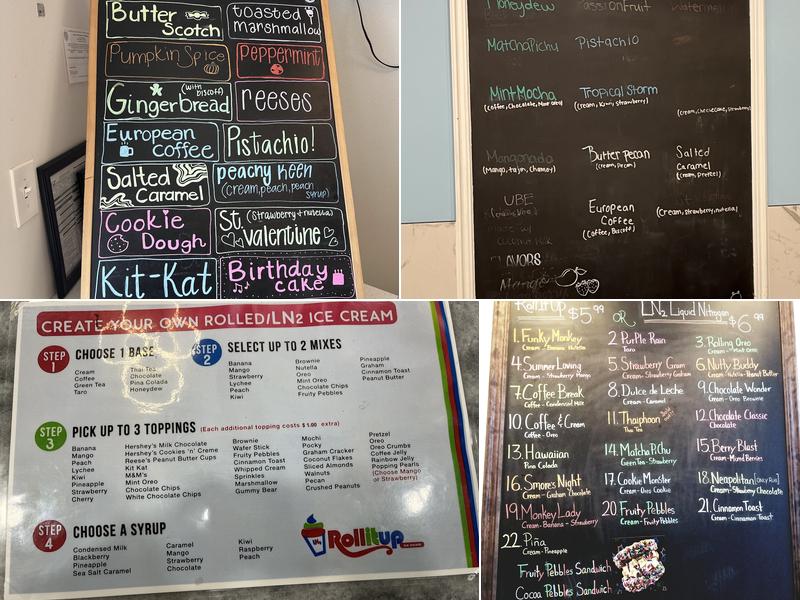 Butter Scotch
toasted marshmallow
Pumpkin Spice
Peppermint
Gingerbread (with biscoff)
reeses
European Coffee
Pistachio!
Salted Caramel
peachy keen
(cream, peach, peach syrup)
Cookie Dough
St. (Strawberry + nutella)
Valentine
Kit-Kat
Birthday cake
Honeydew
Passionfruit
Watermelon
MatchaPichu
Pistachio
MintMocha
(coffee, Chocolate, Mint Oreo)
Tropical Storm
(cream, Kiwi, Strawberry)
(cream, cheesecake, strawberry)
Mangonada
(Mango, tajin, chamoy)
Butter pecan
(cream, Pecan)
Salted Caramel
(cream, Pretzel)
UBE
European Coffee
(Coffee, Biscoff)
(Cream, strawberry, nutella)
coconut Milk
FLAVORS
Mango
CREATE YOUR OWN ROLLED/LN2 ICE CREAM
STEP 1
CHOOSE 1 BASE
Cream
Coffee
Green Tea
Taro
Thai Tea
Chocolate
Pina Colada
Honeydew
STEP 2
SELECT UP TO 2 MIXES
Banana
Mango
Strawberry
Lychee
Peach
Kiwi
Brownie
Nutella
Oreo
Mint Oreo
Chocolate Chips
Fruity Pebbles
Pineapple
Graham
Cinnamon Toast
Peanut Butter
STEP 3
PICK UP TO 3 TOPPINGS (Each additional topping costs $1.00 extra)
Banana
Mango
Peach
Lychee
Kiwi
Pineapple
Strawberry
Cherry
Hershey's Milk Chocolate
Hershey's Cookies 'n' Creme
Reese's Peanut Butter Cups
Kit Kat
M&M's
Mint Oreo
Chocolate Chips
White Chocolate Chips
Brownie
Wafer Stick
Fruity Pebbles
Cinnamon Toast
Whipped Cream
Sprinkles
Marshmallow
Gummy Bear
Mochi
Pocky
Graham Cracker
Coconut Flakes
Sliced Almonds
Walnuts
Pecan
Crushed Peanuts
Pretzel
Oreo
Oreo Crumbs
Coffee Jelly
Rainbow Jelly
Popping Pearls
(Choose Mango
or Strawberry)
STEP 4
CHOOSE A SYRUP
Condensed Milk
Blackberry
Pineapple
Sea Salt Caramel
Caramel
Mango
Strawberry
Chocolate
Kiwi
Raspberry
Peach
Rollitup
RollitUp $5.99 OR LN2 Liquid Nitrogen $6.99
1. Funky Monkey
Cream - Banana - Nutella
2. Purple Rain
Taro
3. Rolling Oreo
Cream - Mint Oreo
4. Summer Loving
Cream - Strawberry - Mango
5. Strawberry Cream
Cream - Strawberry - Graham
6. Nutty Buddy
Cream - Nutella - Peanut Butter
7. Coffee Break
Coffee - Condensed Milk
8. Dulce de Leche
Cream - Caramel
9. Chocolate Wonder
Cream - Oreo - Brownie
10. Coffee & Cream
Coffee - Oreo
11. Thaiphoon
Thai Tea
12. Chocolate Classic
Chocolate
13. Hawaiian
Pina Colada
14. Matcha PiChu
Green Tea - Strawberry
15. Berry Blast
Cream - Mixed Berries
16. Smores Night
Cream - Graham - Chocolate
17. Cookie Monster
Cream - Oreo - Cookie
18. Neapolitan [Only Roll]
Cream - Strawberry - Chocolate
19. Monkey Lady
Cream - Banana - Strawberry
20. Fruity Pebbles
Cream - Fruity Pebbles
21. Cinnamon Toast
Cream - Cinnamon Toast
22. Piña
Cream - Pineapple
Fruity Pebbles Sandwich
Cocoa Pebbles Sandwich